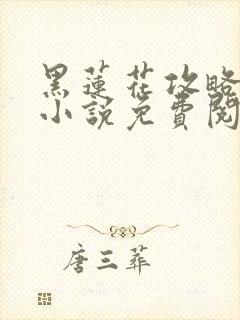 黑蓮花攻略
小說免費閱
唐三葬